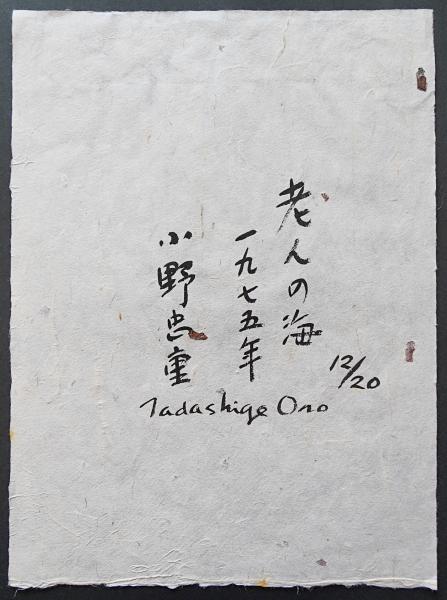 老人の海
一九七五年
小野忠重
12/20
Tadashige Ono